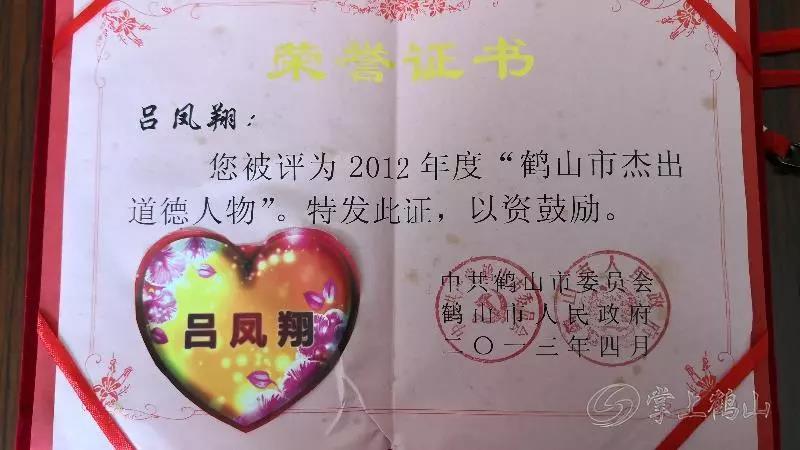 荣誉证书
吕凤翔：
您被评为2012年度“鹤山市杰出
道德人物”。特发此证，以资鼓励。
中共鹤山市委员会
鹤山市人民政府
二〇一三年四月
吕凤翔
掌上鹤山